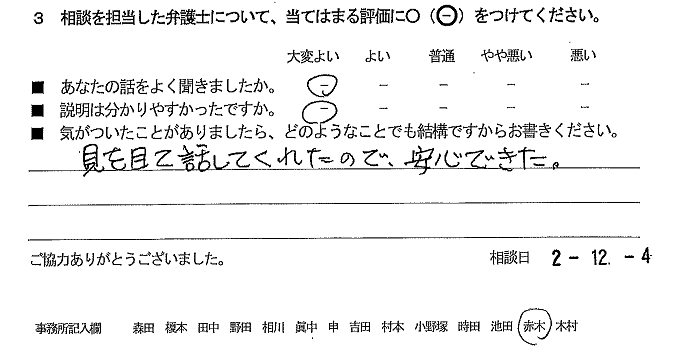 3 相談を担当した弁護士について、当てはまる評価に○(㊀)をつけてください。
大変よい よい 普通 やや悪い 悪い
■ あなたの話をよく聞きましたか。 － － － － －
■ 説明は分かりやすかったですか。 － － － － －
■ 気がついたことがありましたら、どのようなことでも結構ですからお書きください。
見を目て話してくれたので、安心できた。
ご協力ありがとうございました。 相談日 2-12.-4
事務所記入欄 森田 榎本 田中 野田 相川 眞中 申 吉田 村本 小野塚 時田 池田 赤木 木村